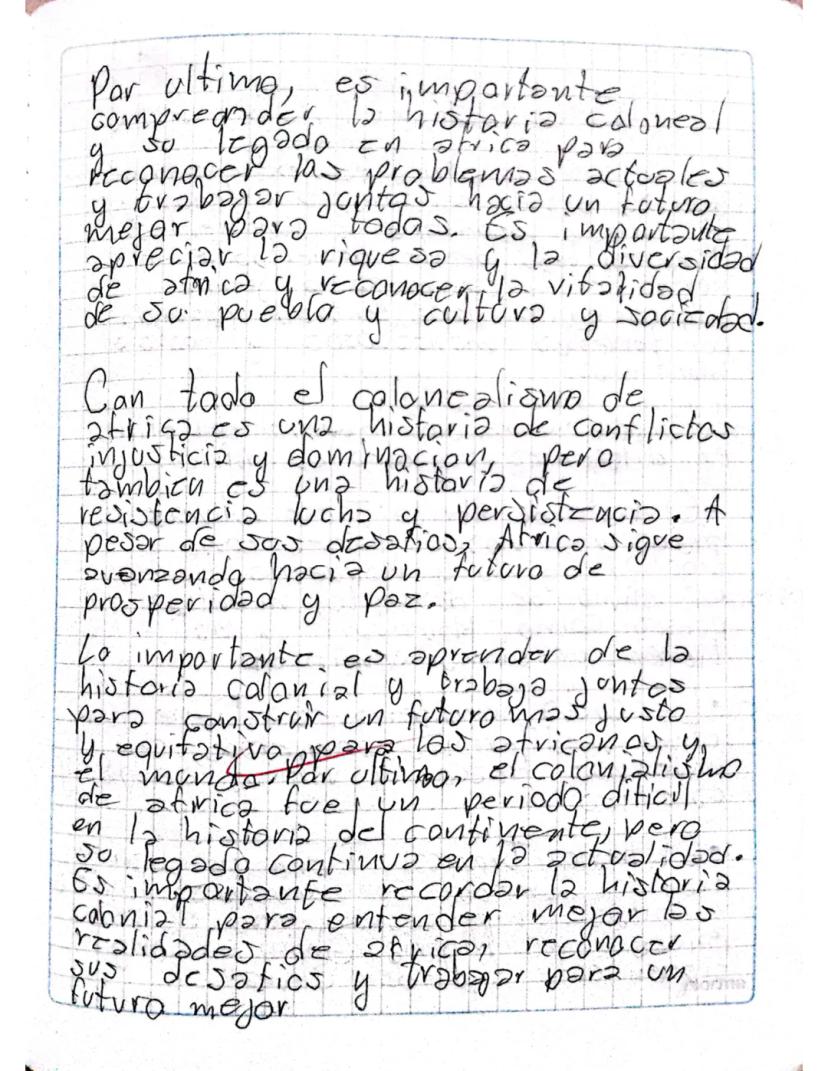 Por ultimo, es importante
compreonder la historia coloneal
y so legado en africa para
reconocer las problemas actuales
y trabagar juntas hacia un futuro
mejor para todas. Es importante
apreciar la riquesa y la diversidad
de africa y reconocer la vitalidad
de su puebla y cultura y sociedad.
Con todo el colonealismo de
africa es una historia de conflictos
injusticia y dominacion, pero
tambien es una historia de
resistencia lucha y persistencia. A
pesar de sus desafios, Africa sigue
avanzando hacia un futuro de
prosperidad y paz.
Lo importante es aprender de la
historia colonial y trabaja juntos
para construir un futuro mas justo
y equitativo para los africanos y
el mundo. Por ultimo, el colonialismo
de africa fue un periodo dificil
en la historia del continente, pero
so legado continua en la actualidad.
Es importante recordar la historia
colonial para entender mejor las
realidades de africa, reconocer
sus desafios y trabagar para un
futuro mejor